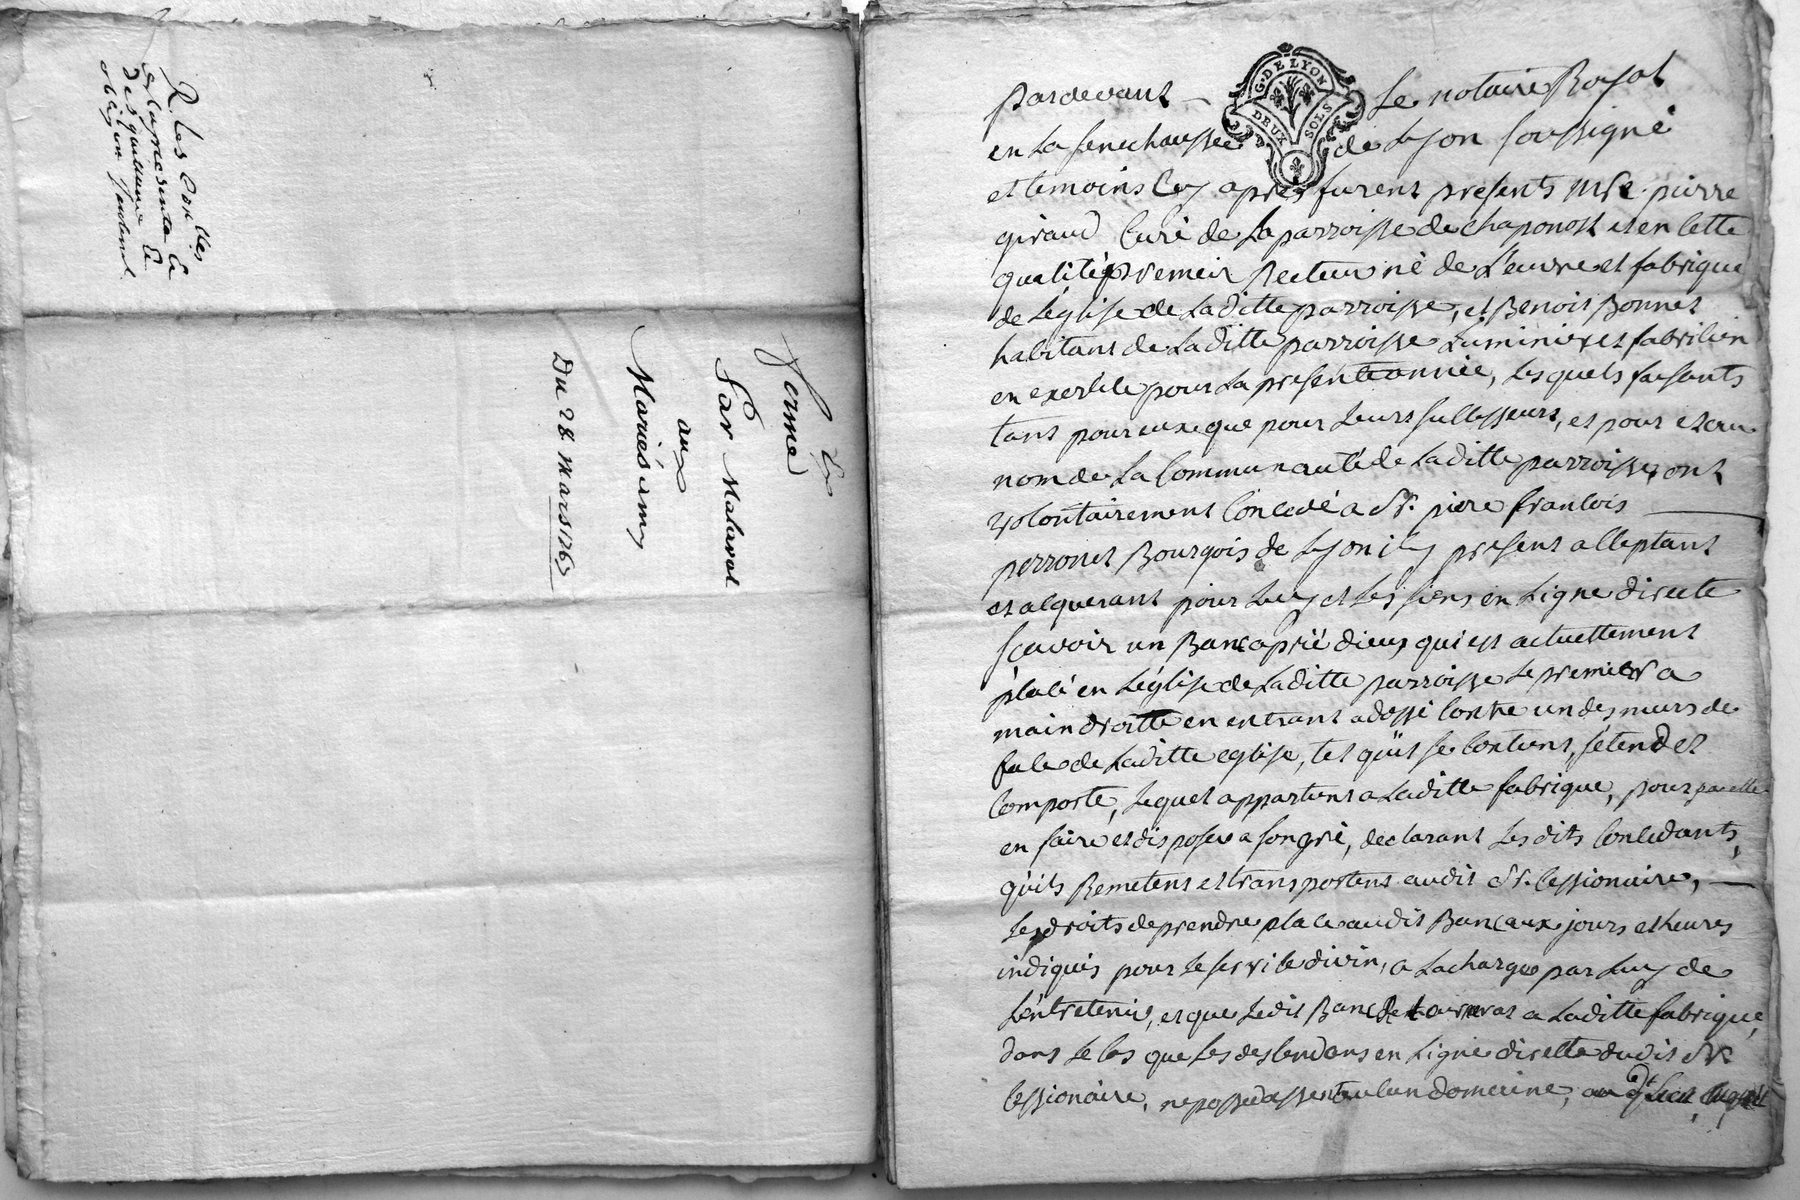 Ferme
Par Malaval
aux
Mariés amy
Du 28 mars 1763
G. DE LYON
DEUX SOLS
pardevant Le notaire Royal
en La senechaussée de Lyon soussigné
et temoins Cy apres furent presents Mre pierre
giraud Curé de La parroisse de chaponost et en Cette
qualité premeir Recteur né de L'euvre et fabrique
de L'église de Laditte parroisse, et Benoit Bonnet
habitant de Laditte parroisse Luminier et fabricien
en exercice pour La presente année, Les quels faisants
tant pour eux que pour Leurs successeurs, et pour et au
nom de La Communauté de Laditte parroisse, ont
volontairement Concedé a Sr. piere francois
perronet Bourgois de Lyon icy present acceptant
et acquerant pour Luy et Les siens en Ligne directe
scavoir un Banc a prié dieu, qui est actuellement
placé en L'église de Laditte parroisse Le premier a
main droitte en entrant adossé Contre un des murs de
face de Laditte eglise, tel qu'il se Contient, s'etend et
Comporte, Lequel appartient a Laditte fabrique, pour par elle
en faire et disposer a son gré, declarant Les dits Concedants,
qu'ils Remetent et transportent audit Sr. Cessionaire,
Les droits de prendre place audit Banc aux jours et heures
indiqués pour Le service divin, a La charge par Luy de
L'entretenir, et que Ledit Banc Retournerat a Laditte fabrique,
dans Le Cas que Les descendans en Ligne directte dudit Sr.
Cessionaire, ne possedassent aucun domaine, au dt Lieu,